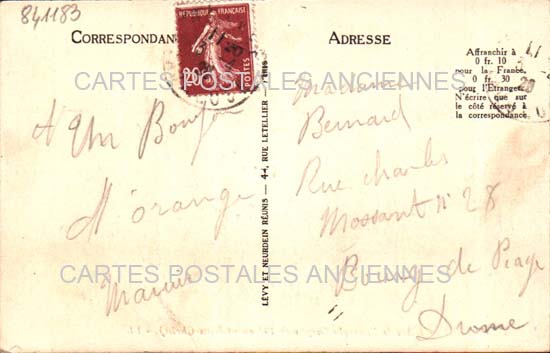 841183
CORRESPONDAN
RÉPUBLIQUE FRANÇAISE
20
POSTES
ADRESSE
Affranchir à
0 fr. 10
pour la France,
0 fr. 30
pour l'Etranger.
N'écrire que sur
le côté réservé à
la correspondance.
CARTES POSTALES ANCIENNES
Un Bonjour
Madame
Bernard
Rue Charles
Mossant N° 28
Bourg de Péage
Drome
LÉVY ET NEURDEIN RÉUNIS — 44, RUE LETELLIER
CARTES POSTALES ANCIENNES